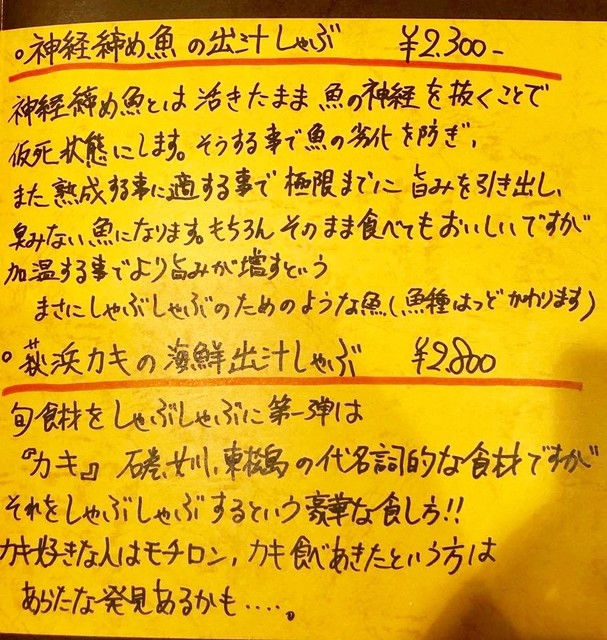 ○神経締め魚の出汁しゃぶ ¥2.300-
神経締め魚とは活きたまま魚の神経を抜くことで
仮死状態にします。そうする事で魚の劣化を防ぎ、
また熟成する事に適する事で極限までに旨みを引き出し、
臭みない魚になります。もちろんそのまま食べてもおいしいですが
加温する事でより旨みが増すという
まさにしゃぶしゃぶのためのような魚(魚種はつどかわります)
○荻浜カキの海鮮出汁しゃぶ ¥2.800
旬食材をしゃぶしゃぶに第一弾は
『カキ』石巻、女川、東松島の代名詞的な食材ですが
それをしゃぶしゃぶするという豪華な食し方!!
カキ好きな人はモチロン、カキ食べあきたという方は
あらたな発見あるかも・・・・。